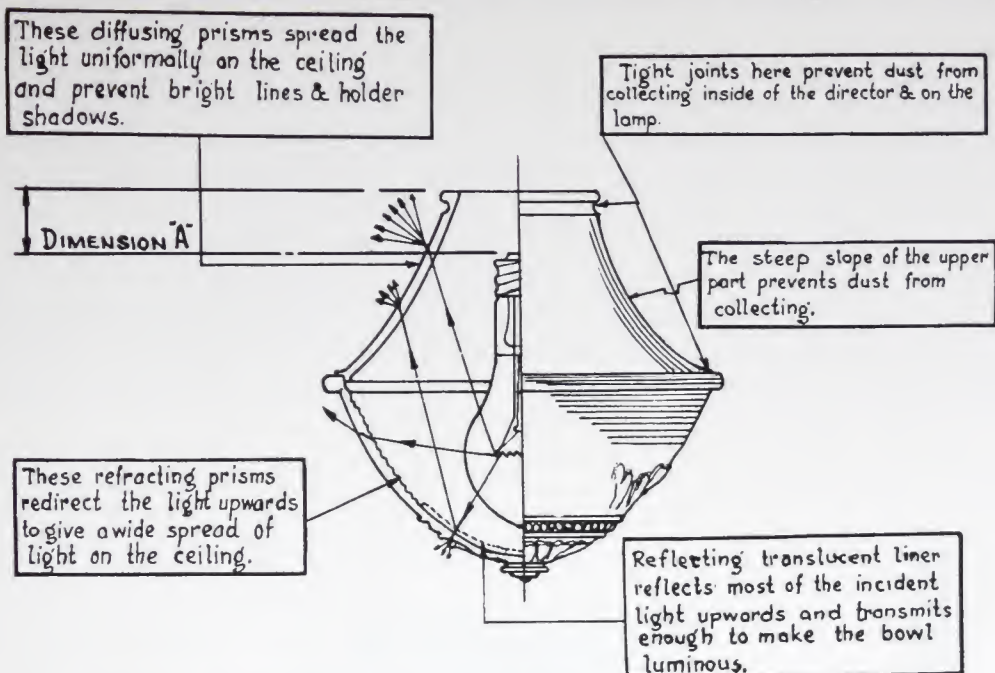 These diffusing prisms spread the
light uniformally on the ceiling
and prevent bright lines & holder
shadows.
Tight joints here prevent dust from
collecting inside of the director & on the
lamp.
DIMENSION "A"
The steep slope of the upper
part prevents dust from
collecting.
These refracting prisms
redirect the light upwards
to give a wide spread of
light on the ceiling.
Reflecting translucent liner
reflects most of the incident
light upwards and transmits
enough to make the bowl
luminous.